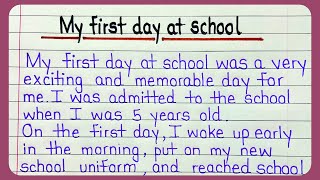 My first day at school
My first day at school was a very
exciting and memorable day for
me. I was admitted to the school
when I was 5 years old.
On the first day, I woke up early
in the morning, put on my new
school uniform, and reached school